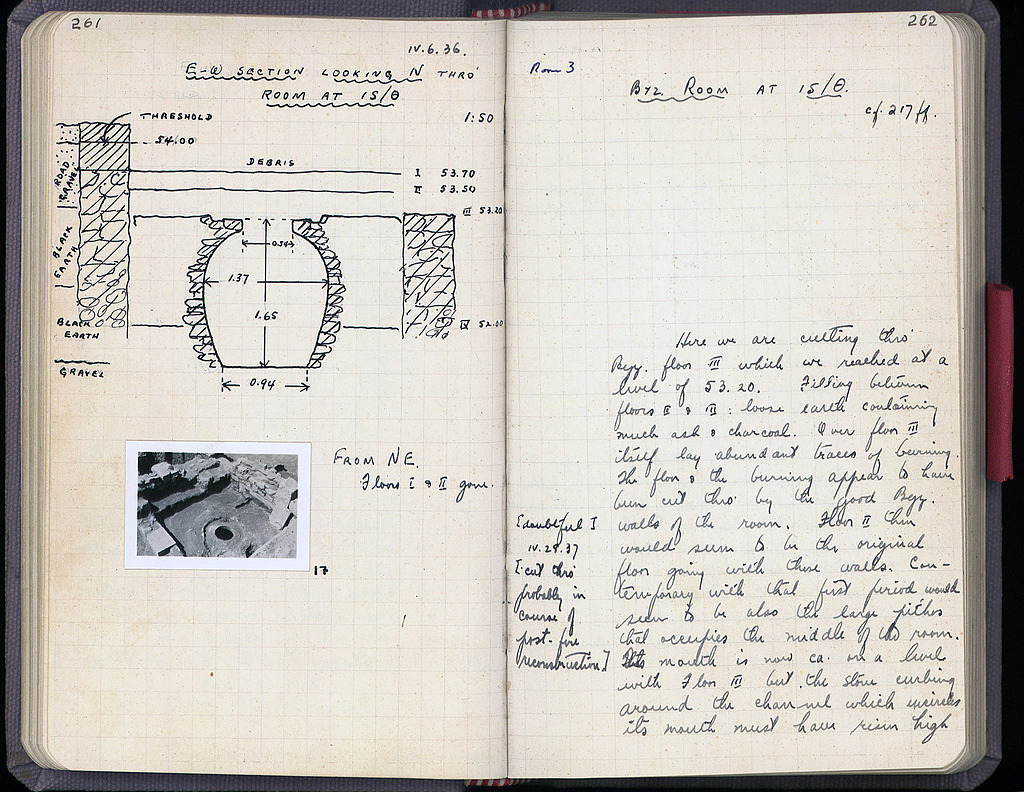 261
IV.6.36.
E-W SECTION LOOKING N THRO'
ROOM AT 15/Θ
THRESHOLD
1:50
54.00
DEBRIS
I 53.70
II 53.50
III 53.20
ROAD GRAVEL
BLACK EARTH
0.54
1.37
1.65
IV 52.00
BLACK
EARTH
GRAVEL
0.94
FROM NE.
Floors I & II gone.
17
262
Room 3
BYZ. ROOM AT 15/Θ.
cf. 217 ff.
Here we are cutting thro'
Byz. floor III which we reached at a
level of 53.20. Filling between
floors II & III: loose earth containing
much ash & charcoal. Over floor III
itself lay abundant traces of burning.
The floor & the burning appear to have
been cut thro' by the good Byz.
walls of the room. Floor II then
would seem to be the original
floor going with those walls. Con-
temporary with that first period would
seem to be also the large pithos
that occupies the middle of the room.
Its mouth is now ca. on a level
with Floor III but the stone curbing
around the channel which encircles
its mouth must have risen high
[doubtful I
IV.28.37
[cut thro'
probably in
course of
post-fire
reconstruction.]